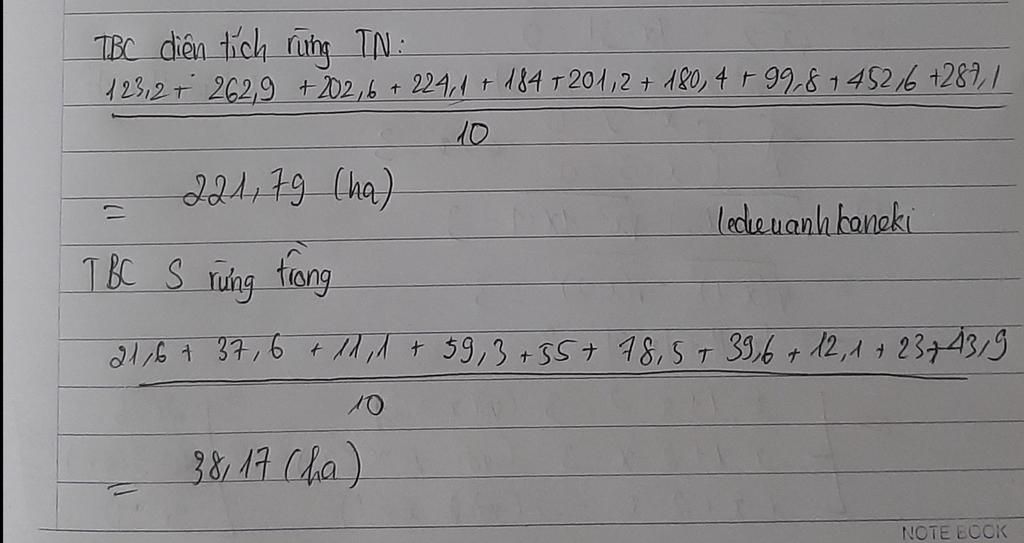 TBC diện tích rừng TN:
123,2 + 262,9 + 202,6 + 224,1 + 184 + 201,2 + 180,4 + 99,8 + 452,6 + 287,1
10
= 221,79 (ha)
ledieuanhkaneki
TBC S rừng trồng
21,6 + 37,6 + 11,1 + 59,3 + 55 + 78,5 + 39,6 + 12,1 + 23 + 43,9
10
= 38,17 (ha)
NOTE BOOK